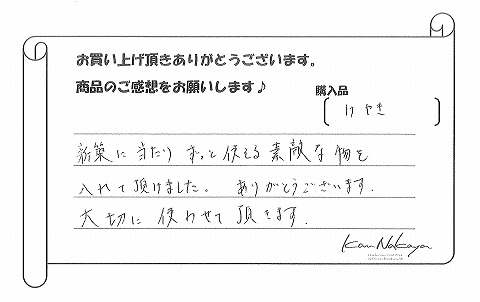 お買い上げ頂きありがとうございます。
商品のご感想をお願いします♪
購入品
けやき
新築に当たり ずっと使える素敵な物を
入れて頂けました。 ありがとうございます.
大切に使わせて頂きます.
Kan Nakaya